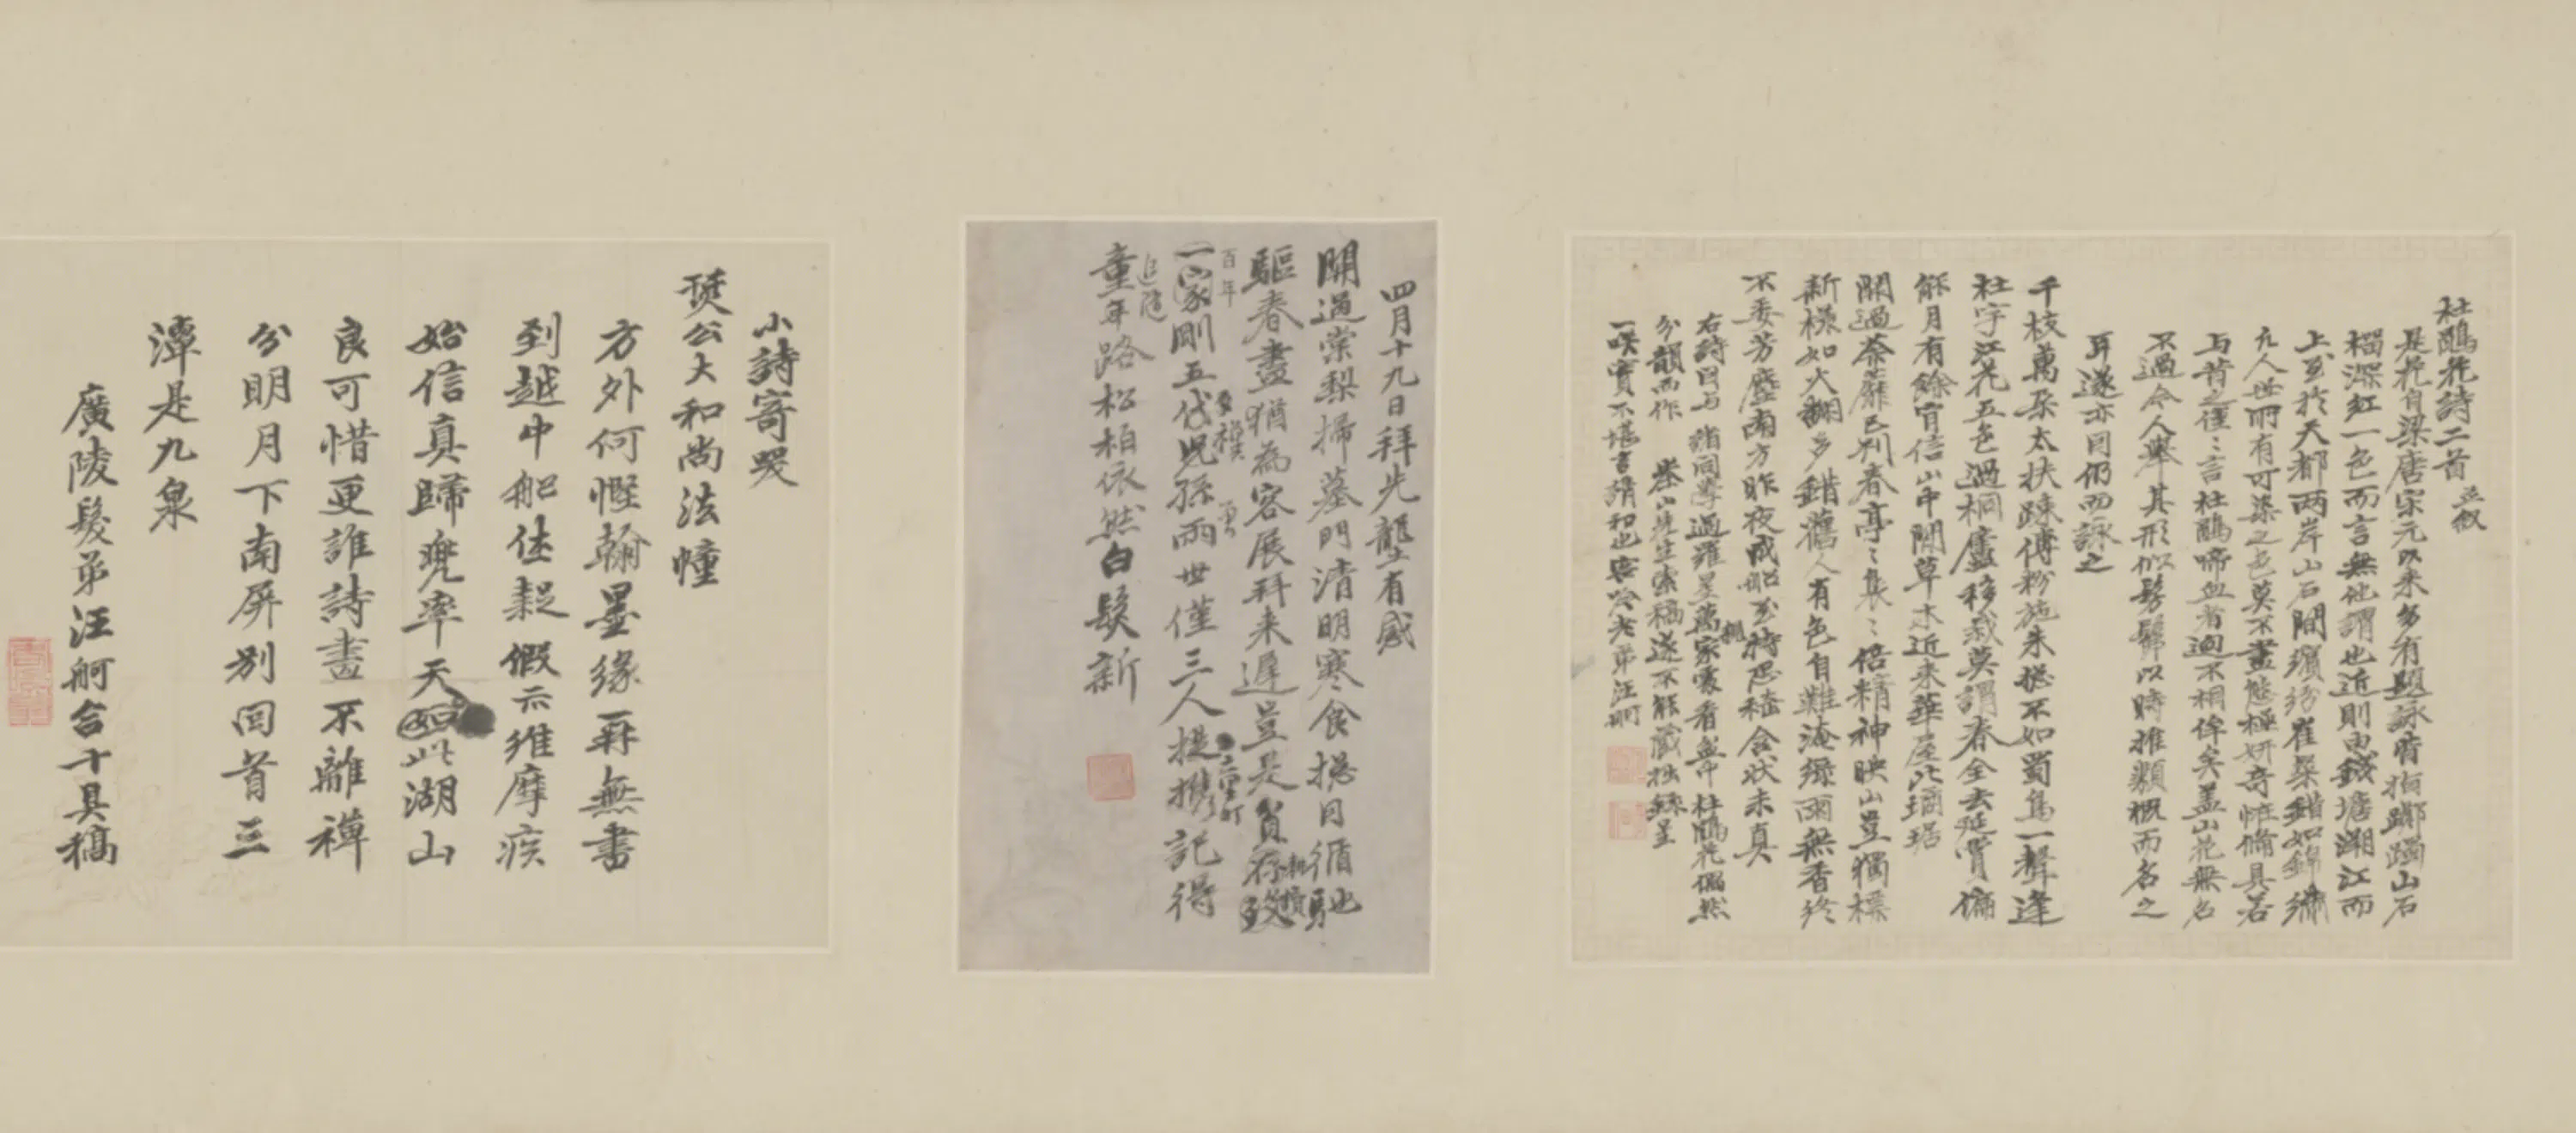 杜鵑花詩二首 並敘
是花自梁唐宋元以來多有題詠有指躑躅山石
榴深紅一色而言無他謂也近則由錢塘潮江而
上至於天都兩岸山石間繽紛崔粲錯如錦繡
凡人世所有可染之色莫不盡態極妍奇惟備具若
与昔之僅〻言杜鵑啼血者迥不相侔矣蓋山花無名
不過令人舉其形似髣髴以時推類概而名之
耳遂亦因仍而詠之
千枝萬朵太扶踈傅粉施朱總不如蜀鳥一聲逢
杜宇江花五色過桐廬移栽莫謂春全去延賞偏
能月有餘肯信山中閒草木近來華屋比璠琚
開過荼蘼已別春亭〻裊〻倍精神映山豈獨標
新樣如火翻多錯舊人有色自難淹綠雨無香終
不委芳塵南方昨夜成船至特恐嵇含狀未真
右詩因与 諸同學過羅星萬家園看盆中杜鵑花偶然
分韻而作 先生索稿遂不能藏拙錄呈
一咲實不堪言請和也 弟汪舸
四月十九日拜先壟有感
開過棠梨掃墓門清明寒食總因循馳
驅春盡猶為客展拜來遲豈是貧存歿
一家剛五代兒孫兩世僅三人提攜記得
百年
追隨
童年路松柏依然白髮新
小詩寄哭
爕公大和尚法幢
方外何慳翰墨緣再無書
到越中船佳穀假示維摩疾
始信真歸兜率天如此湖山
良可惜更誰詩畫不離禪
分明月下南屏別回首三
潭是九泉
廣陵髮弟汪舸合十具稿